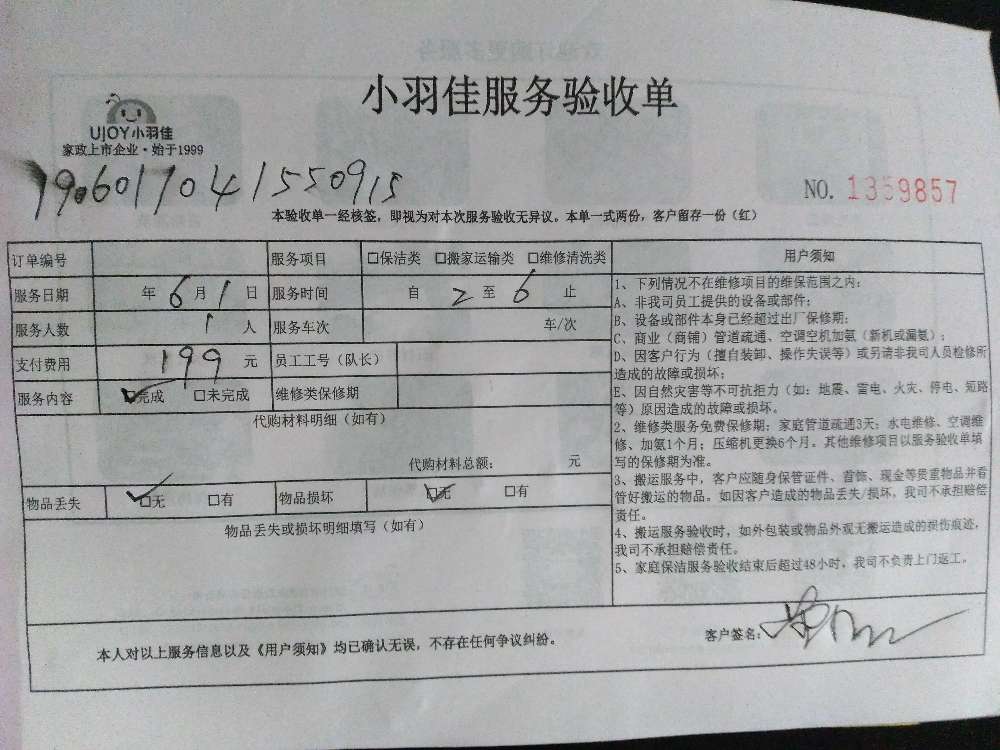 小羽佳服务验收单
U|OY小羽佳
家政上市企业·始于1999
1906017041550915
NO. 1359857
本验收单一经核签，即视为对本次服务验收无异议。本单一式两份，客户留存一份（红）
订单编号 服务项目 □保洁类 □搬家运输类 □维修清洗类
服务日期 年 6 月 1 日 服务时间 自 2 至 6 止
服务人数 1 人 服务车次 车/次
支付费用 199 元 员工工号（队长）
服务内容 ☑完成 □未完成 维修类保修期
代购材料明细（如有）
代购材料总额： 元
物品丢失 ☑无 □有 物品损坏 ☑无 □有
物品丢失或损坏明细填写（如有）
用户须知
1、下列情况不在维修项目的维保范围之内：
A、非我司员工提供的设备或部件；
B、设备或部件本身已经超过出厂保修期；
C、商业（商铺）管道疏通、空调空机加氨（新机或漏氨）；
D、因客户行为（擅自装卸、操作失误等）或另请非我司人员检修所
造成的故障或损坏；
E、因自然灾害等不可抗拒力（如：地震、雷电、火灾、停电、短路
等）原因造成的故障或损坏。
2、维修类服务免费保修期：家庭管道疏通3天；水电维修、空调维
修、加氨1个月；压缩机更换6个月。其他维修项目以服务验收单填
写的保修期为准。
3、搬运服务中，客户应随身保管证件、首饰、现金等贵重物品并看
管好搬运的物品。如因客户造成的物品丢失/损坏，我司不承担赔偿
责任。
4、搬运服务验收时，如外包装或物品外观无搬运造成的损伤痕迹，
我司不承担赔偿责任。
5、家庭保洁服务验收结束后超过48小时，我司不负责上门返工。
本人对以上服务信息以及《用户须知》均已确认无误，不存在任何争议纠纷。
客户签名：